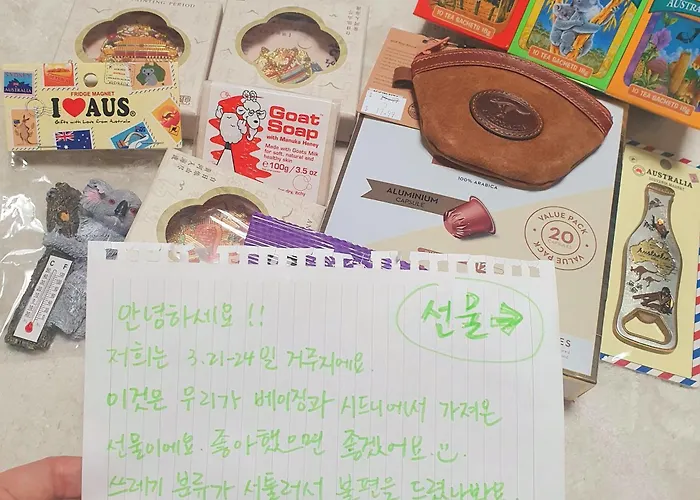 PAINTING PERIOD
AUSTRALIA
10 TEA BAGS NET 15g
10 TEA BAGS NET 15g
10 TEA BAGS NET 15g
FRIDGE MAGNET
I ❤ AUS®
Gifts with Love from Australia
Goat
Soap
with Manuka Honey
Made with Goats Milk
for soft, natural and
healthy skin
100g/3.5 oz
100% ARABICA
ALUMINIUM
CAPSULE
VALUE PACK
20
VALUE PACK
AUSTRALIA
Australia
C F
안녕하세요!!
선물→
저희는 3.21-24일 거주자예요.
이것은 우리가 베이징과 시드니에서 가져온
선물이에요. 좋아했으면 좋겠어요.
쓰레기 분류가 서툴러서 불편을 드렸나봐요